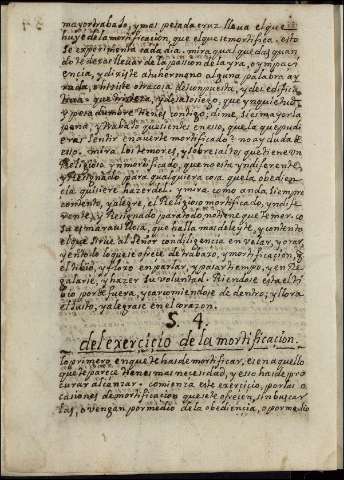 mayor trabajo, y mas pesada cruz lleua el que
huye de la mortificacion, que el que se mortifica. esto
se experimenta cada dia. mira qual quedas quan
do te dexas lleuar de la passion de la yra, o ympaci
encia, y dixiste a tu hermano alguna palabra ay
rada, o hiziste otra cosa descompuesta, y de desedifica
que tristeza, y desasosiego, que ynquietud
y pesadumbre tienes contigo; dime, si es mayor la
pena, y trabajo que sientes en esso, que la que pudi
eras sentir en auerte mortificado? no ay duda de
esso. mira los temores, y sobresaltos que tiene un
Religioso ynmortificado, que no esta yndiferente,
y Resignado para qualquiera cosa que la obedien
cia quisiere hazer del. y mira como anda siempre
contento, y alegre, el Religioso mortificado, yndife
rente, y Resignado para todo, no tiene que temer. co
sa es marauillosa, que halla mas deleyte, y contento
el que sirue al Señor con diligencia en velar, y orar,
y en todo lo que se ofrece de trabajo, y mortificacion, q̃
el tibio, y floxo en parlar, y passar tiempo, y en Re
galarse, y hazer su voluntad. Riendose esta el ti
bio por de fuera, y carcomiendose de dentro; y llora
el Justo, y alegrase en el corazon.
S. 4.
del exercicio de la mortificacion.
lo primero en que te has de mortificar, es en aquello
que te parece tienes mas necesidad, y esso has de pro
curar alcanzar. comienza este exercicio, por las o
casiones de mortificacion que se te ofrecen, sin buscar
las, o vengan por medio de la obediencia, o por medio